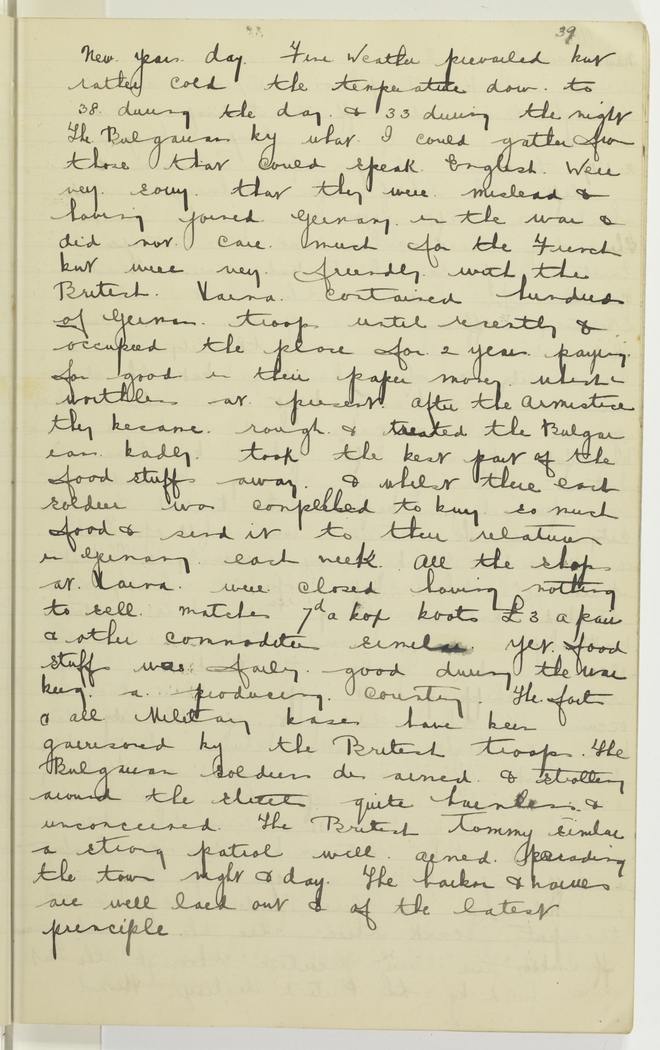 39
New years day. Fine weather prevailed but
rather cold the temperature dow. to
38. during the day. & 33 during the night
The Bulgarians by what I could gather from
those that could speak English. Were
very sorry. that they were mislead &
having joined Germany. in the war &
did not care. much for the French
but were very friendly. with the
British. Varna. contained hundreds
of German. troops until recently &
occupied the place for 2 years. paying
for good in their paper money. which
worthless at present. After the Armistice
they became. rough & treated the Bulgar
ians badly. took the best part of the
food stuffs away. & whilst there each
soldier was conpelled to buy so much
food & send it to their relatives
in Germany each week. All the shops
at Varna. were closed having nothing
to sell. matches 7d a box boots £3 a pair
& other commodities similar. yet food
stuffs was fairly good during the war
being. a producing. country. The forts
& all Military bases have been
gairisoned by the British troops. The
Bulgarian soldiers dis armed. & strolling
around the streets quite harmless. &
unconcerned. The British Tommy similar
a strong patrol well. armed. parading
the town night & day. The harbor &
are well laed out & of the latest
principle.